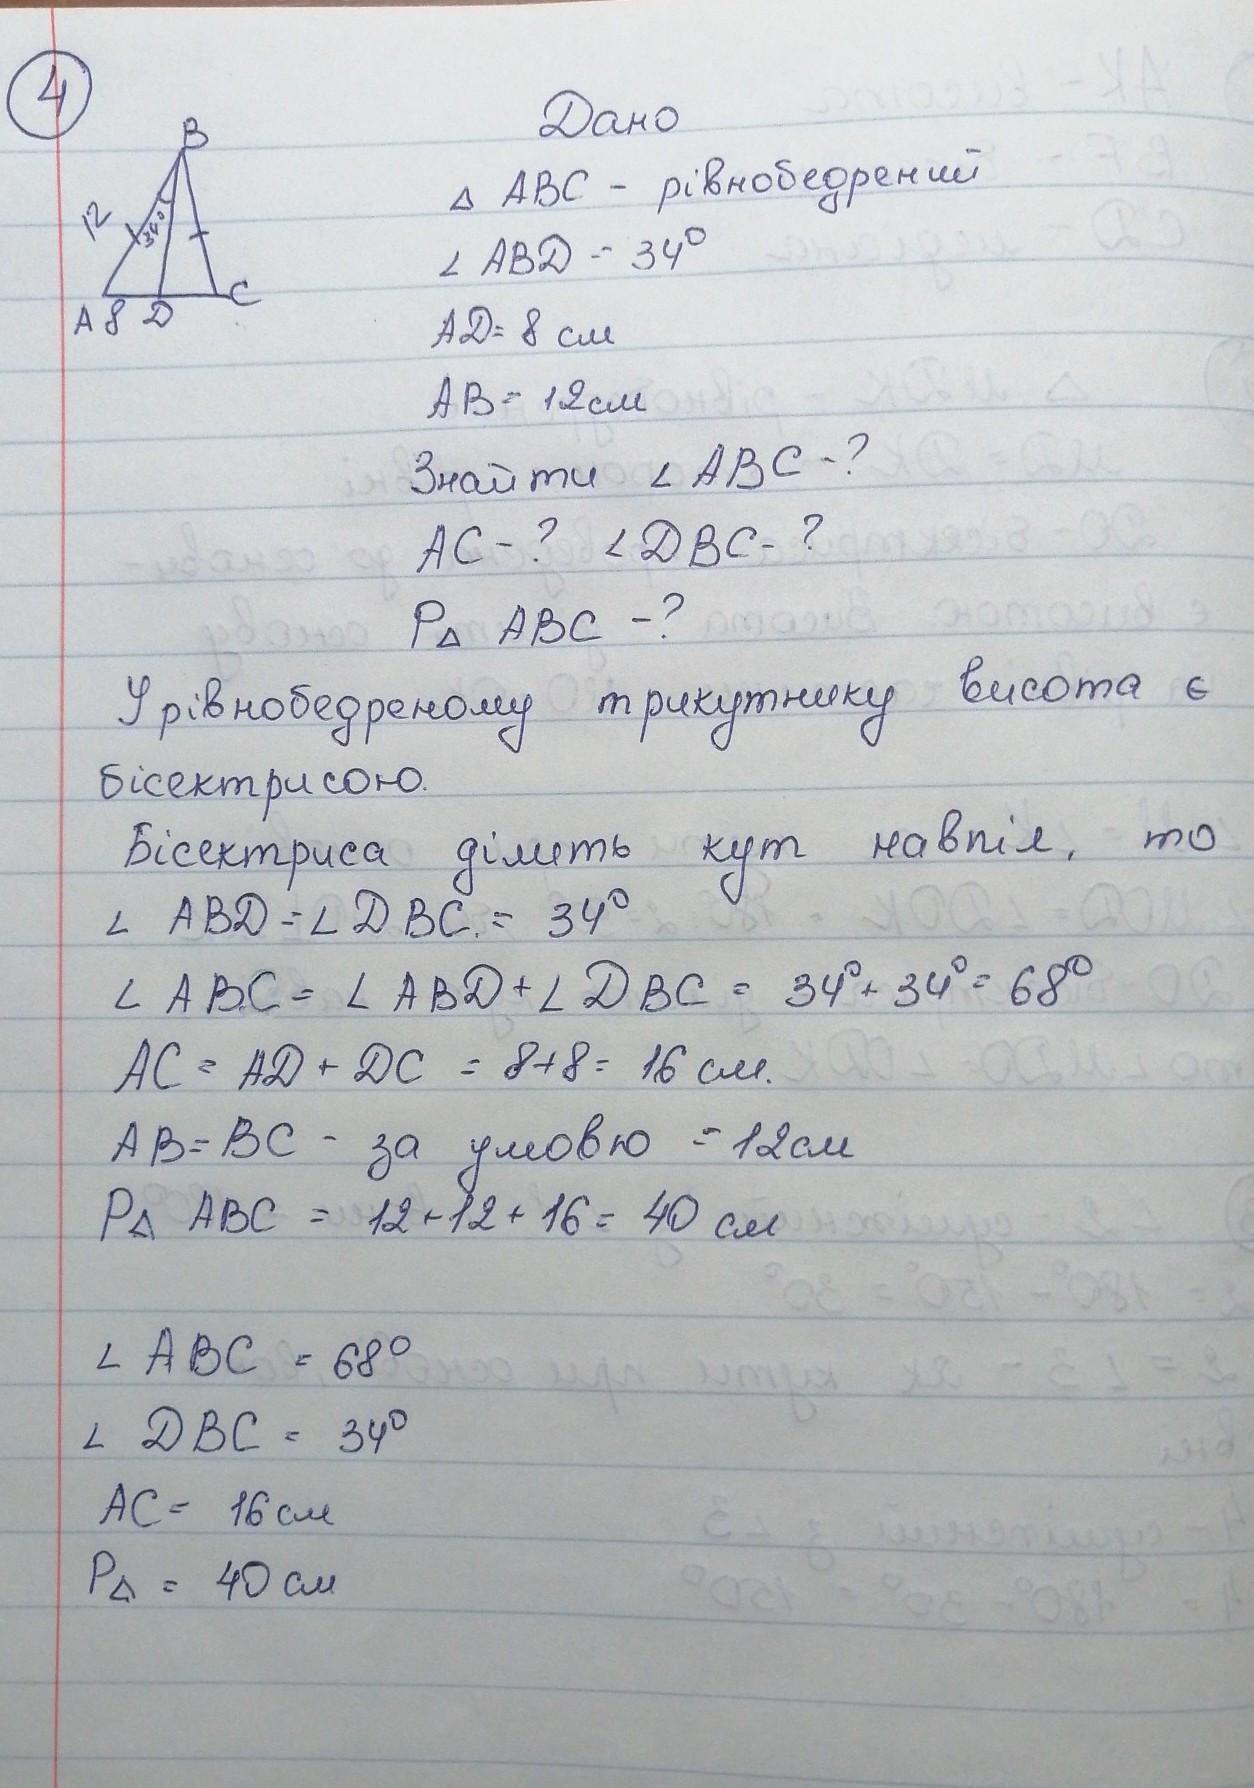 4
B
12
34°
A 8 D C
Дано
△ ABC - рівнобедрений
∠ ABD = 34°
AD = 8 см
AB = 12 см
Знайти ∠ ABC - ?
AC - ? ∠ DBC - ?
P△ ABC - ?
У рівнобедреному трикутнику висота є
бісектрисою.
Бісектриса ділить кут навпіл, то
∠ ABD = ∠ DBC = 34°
∠ ABC = ∠ ABD + ∠ DBC = 34° + 34° = 68°
AC = AD + DC = 8 + 8 = 16 см.
AB = BC - за умовю = 12 см
P△ ABC = 12 + 12 + 16 = 40 см
∠ ABC = 68°
∠ DBC = 34°
AC = 16 см
P△ = 40 см